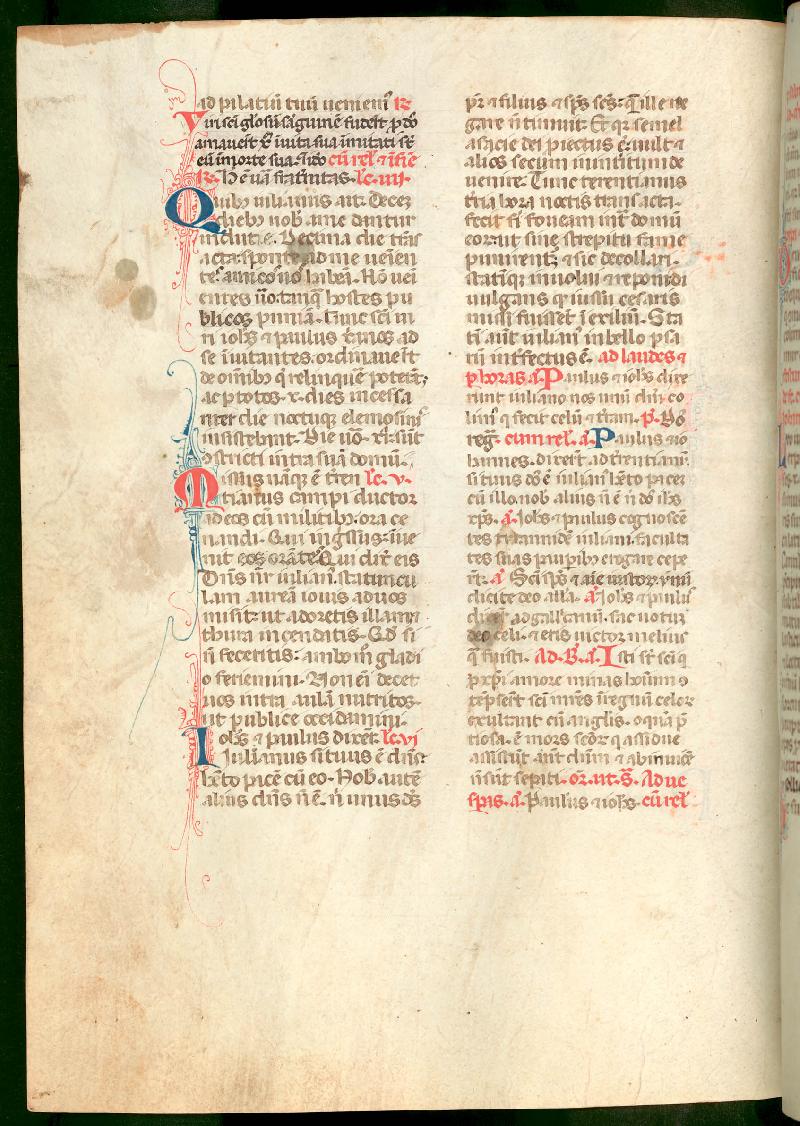 ad palatiū tuū ueniem᷒ ℟
Viri sc̄i gl̄osū sāguinē fuderūt ꝑ dn̄o
amauer̄t xp̄m ī uita sua īmitati sūt
eū ī morte sua. Jdō cū rel᷒ ⁊ ī fine
℟. Hec ē ūa fr̄nitas. le. iiij.
Quibꝰ iulianus ait. Decez
diebꝰ uob̄ īdutie dantur
Decima die trās
acta. sponte ad me uenien
tes amicos uos habeā. Nō ueni
entes ūo. tanq̄ hostes pu
blicos puniā. Tunc sc̄i ui
ri ioh̄s ⁊ paulus xp̄ianos ad
se īuitantes. ordinauer̄t
de om̄ibꝰ q̄ relinquere poterāt;
ac ꝑ totos .x. dies incessa
nter die noctuqꝫ elemosinis
insistebant. Die ūo .xi. sūt
ostricti intra suā domū.
Missus nāqꝫ ē teren le. v.
tianus campi ductor
ad eos cū militibꝰ. ora ce
nandi. Qui ingressus. inue
nit eos orātes. Qui dix̄ eis
Dn̄s nr̄ iulian᷒. statuncu
lam aureā iouis ad uos
misit. ut adoretis illam ⁊
thura incendatis. Qd̄ si
n̄ feceritis: ambo ī gladi
o feriemini. Non eī decet
uos intra aulā nutritos.
ut publice occidamini.
Ioh̄s ⁊ paulus dixer̄t. le. vi
Si iulianus si tuus ē dn̄s
hēto pacē cū eo. Nob̄ autē
alius dn̄s n̄ ē. n̄ unus ds̄
pr̄ ⁊ filius ⁊ sp̄s sc̄s. Quē ille ne
gare n̄ timuit. Et qꝛ semel
a facie dei proiectus ē. uult ⁊
alios secum in interitum de
uenire. Tunc terentianus
tria hora noctis transacta.
fecit fi foueam int̄ domū
eorū: ut sine strepitu fame
punirent᷒; ⁊ sic decollari.
statiqꝫ inuolui ⁊ reponi di
uulgans qꝛ iussu cesaris
missi fuissent ī exiliū. Sta
tī aūt iulian᷒ in bello ꝑsa
rū int̄fectus ē. ad laudes ⁊
ꝑ horas. a. Paulus ⁊ ioh̄s dixe
runt iuliano nos unū dm̄ co
lim᷒ q̄ fecit celū ⁊ t̄ram. p̄. Dn̄s
reḡ. cum rel᷒. a. Paulus ⁊ io
hannes. dixer̄t ad terentianū.
si tuus dn̄s ē iulian᷒ hēto pacē
cū illo. nob̄ alius n̄ ē n̄ dn̄s ih̄s
xp̄s. a. Ioh̄s ⁊ paulus cognoscē
tes tyrannidē iuliani. faculta
tes suas pauꝑibꝰ erogare cepe
rt̄. a. Sc̄i sp̄s ⁊ aīe iustorum. ymnū
dicite deo alla. a. Ioh̄s ⁊ paul᷒
dixer̄t ad gallicanū. fac uotum
deo celi. ⁊ eris uictor melius
q̄ fuisti. Ad. B̄. a. Isti sūt sc̄i q̄
ꝑ xp̄i amore minas hominū
xēpser̄t sc̄i mr̄es ī regnū celor᷒
exultant cū anglis. o quā p̄
tiosa. ē mors sc̄or᷒ q̄ assidue
assistūt ant̄ dn̄m ⁊ ab īuicē
n̄ sūt seꝑati. or̄. ut. s̄. Ad ue
spas. a. Paulus ⁊ ioh̄s. cū rel᷒